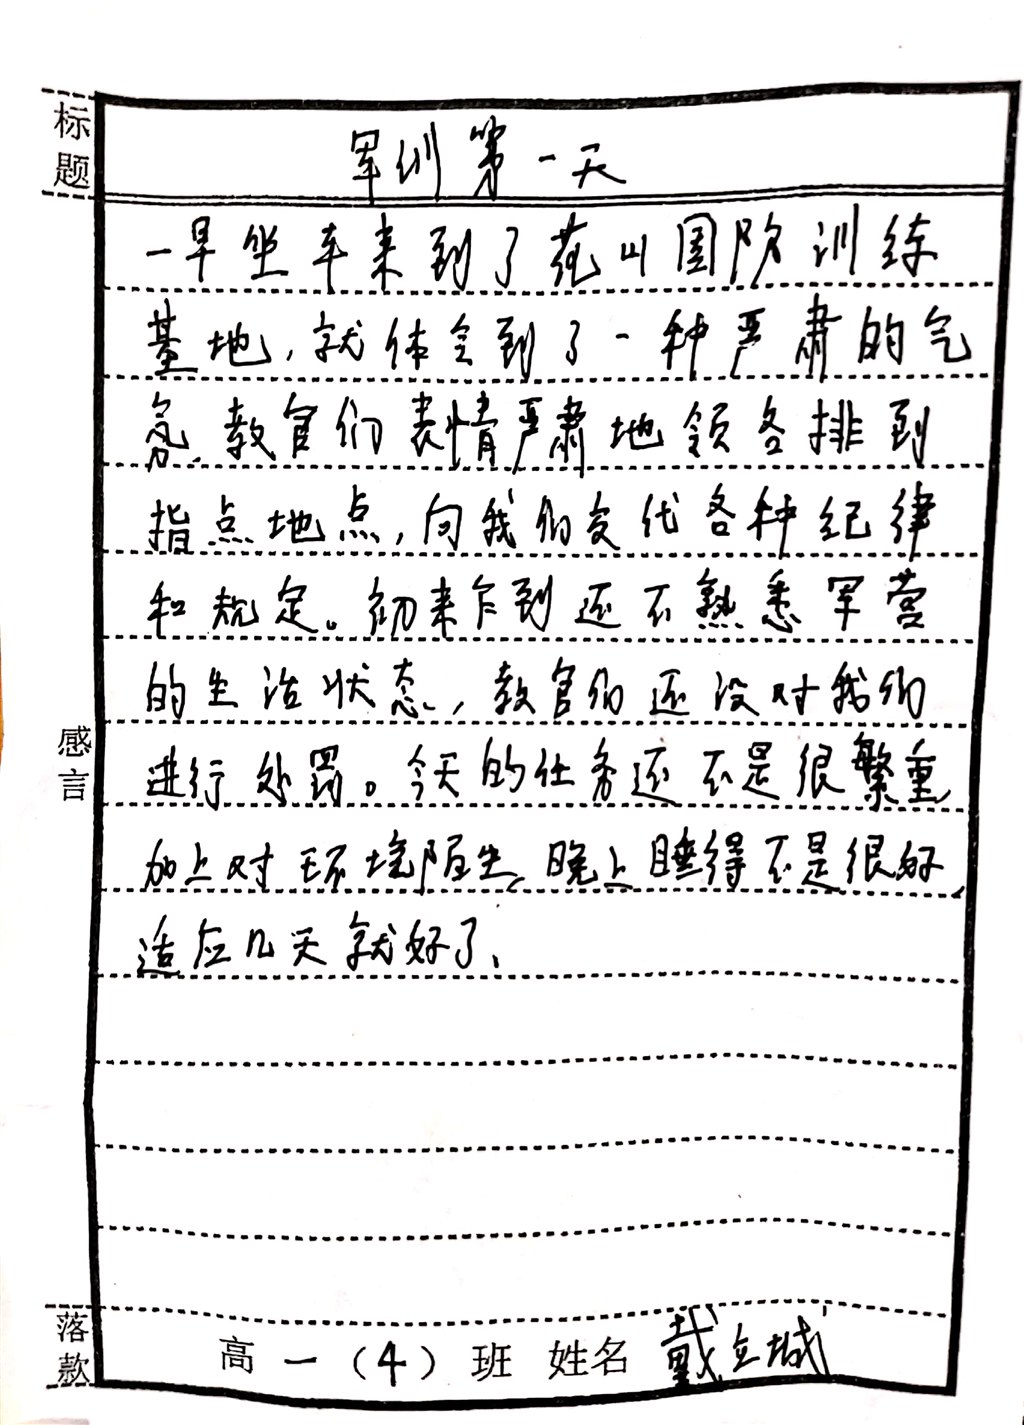 标题
军训第一天
一早坐车来到了花山国防训练
基地，就体会到了一种严肃的气
氛.教官们表情严肃地领各排到
指点地点，向我们交代各种纪律
和规定。初来乍到还不熟悉军营
的生活状态，教官们还没对我们
进行处罚。今天的任务还不是很繁重
加上对环境陌生,晚上睡得不是很好,
适应几天就好了、
感言
落款
高一（4）班 姓名 戴立城